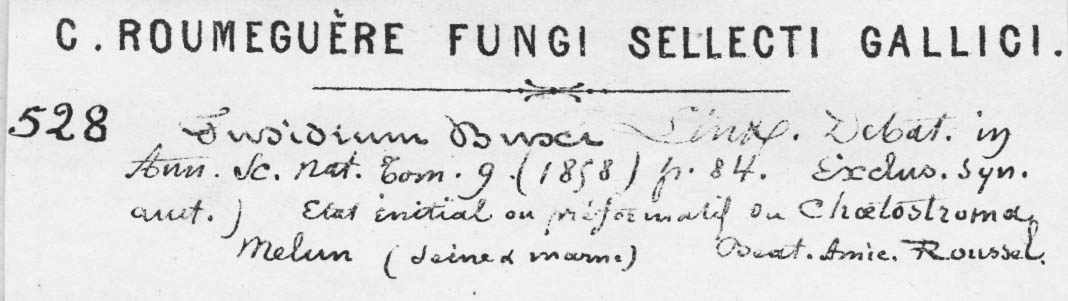 C. ROUMEGUÈRE FUNGI SELLECTI GALLICI.
528 Fusidium Buxi Link. Debat. in
Ann. Sc. Nat. Tom. 9. (1858) p. 84. Exclus. Syn.
auct.) Etat initial ou préformatif du Chœtostroma.
Melun (Seine & marne) Beat. Amic. Roussel.